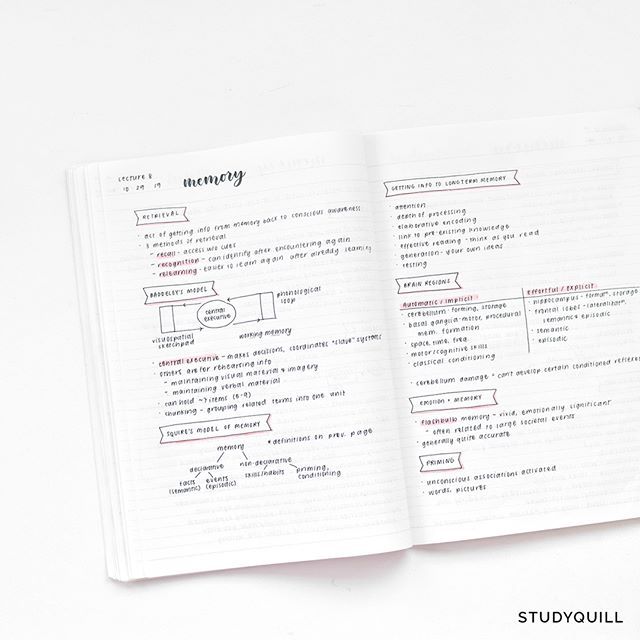 LECTURE 8
10 29 19
memory
RETRIEVAL
· act of getting info from memory back to conscious awareness
· 3 methods of retrieval
- recall - access w/o cues
- recognition - can identify after encountering again
- relearning - easier to learn again after already learning
BADDELEY'S MODEL
central executive
phonological loop
visuospatial sketchpad
working memory
· central executive - makes decisions, coordinates "slave" systems
· others are for rehearsing info
- maintaining visual material & imagery
- maintaining verbal material
· can hold ~7 items (5-9)
· chunking - grouping related terms into one unit
SQUIRE'S MODEL OF MEMORY
* definitions on prev. page
memory
declarative non-declarative
facts (semantic) events (episodic) skills/habits priming, conditioning
GETTING INFO TO LONGTERM MEMORY
· attention
· depth of processing
· elaborative encoding
· link to pre-existing knowledge
· effective reading - think as you read
· generation - your own ideas
· testing
BRAIN REGIONS
Automatic / implicit
· cerebellum - forming, storage
· basal ganglia - motor, procedural
mem. formation
· space, time, freq.
· motor/cognitive skills
· classical conditioning
effortful / explicit
· hippocampus - format°, storage
· frontal lobes - lateralizat°,
semantic & episodic
· semantic
· episodic
· cerebellum damage = can't develop certain conditioned reflexes
EMOTION & MEMORY
· flashbulb memory - vivid, emotionally significant
- often related to large societal events
· generally quite accurate
PRIMING
· unconscious associations activated
· words, pictures
STUDYQUILL